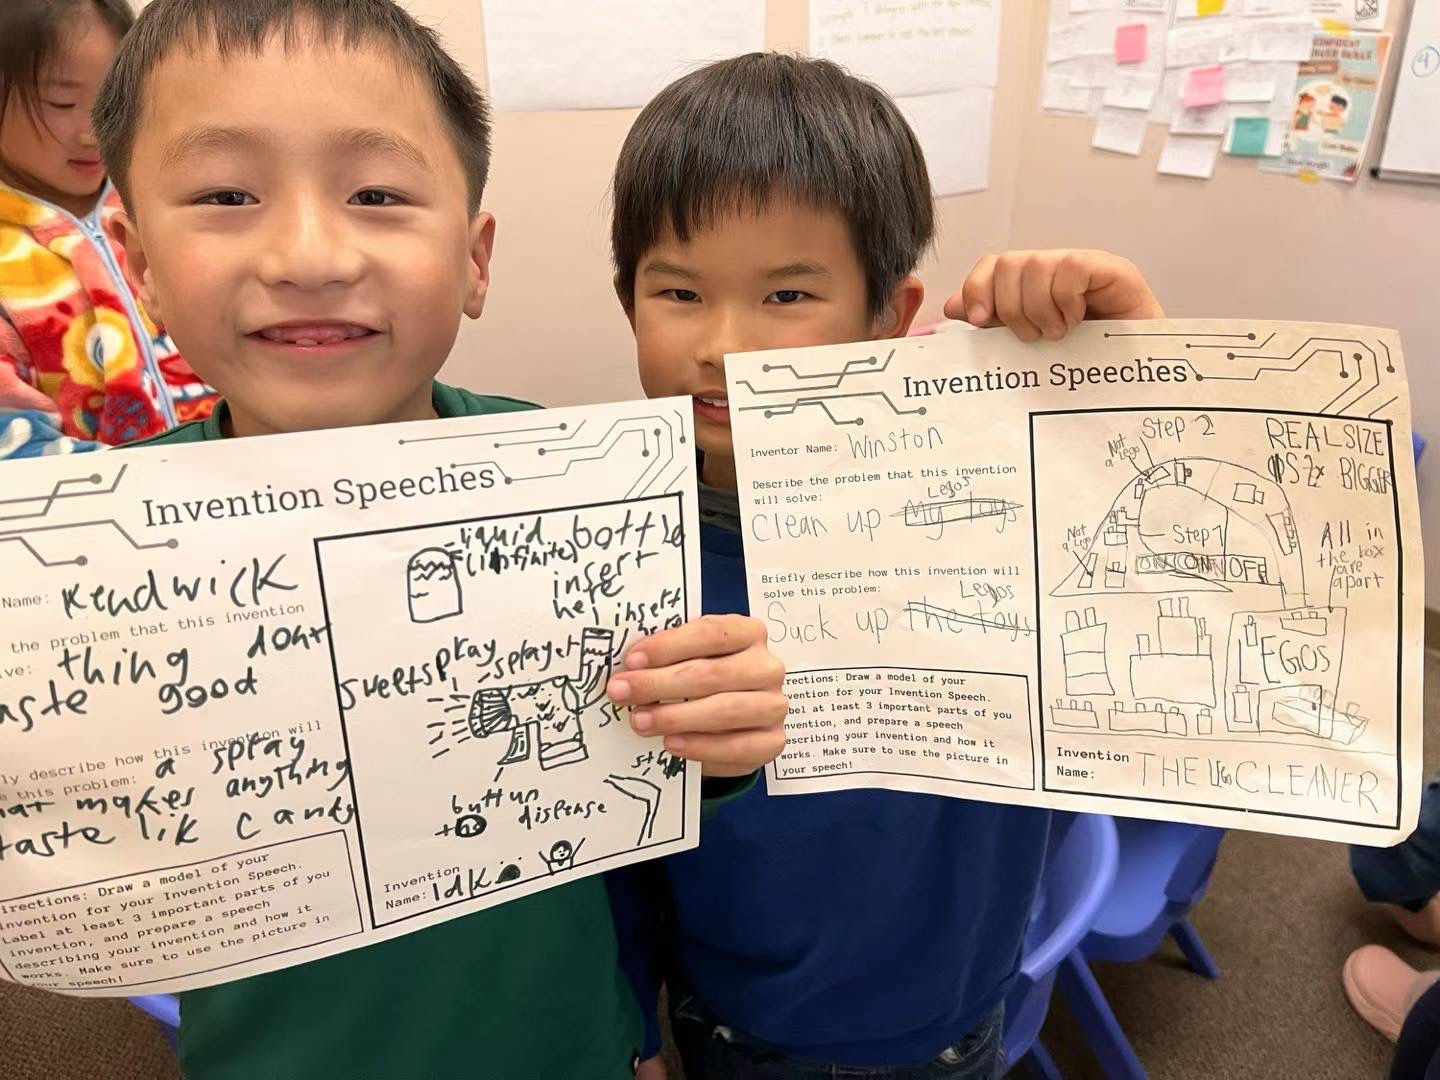 Invention Speeches
Name: Kendwick
the problem that this invention
ve: thing dont
aste good
ly describe how this invention will
this problem: a spray
hat makes anything
taste lik candy
irections: Draw a model of your
invention for your Invention Speech.
Label at least 3 important parts of you
invention, and prepare a speech
describing your invention and how it
works. Make sure to use the picture in
your speech!
liquid bottle
(infinite)
insert
here
insert
here
sweetspray
sprayer
button
to
dispense
Invention
Name: Idk
Invention Speeches
Inventor Name: Winston
Describe the problem that this invention
will solve:
Legos
Clean up My toys
Briefly describe how this invention will
solve this problem:
Legos
Suck up the toys
rections: Draw a model of your
vention for your Invention Speech.
abel at least 3 important parts of you
nvention, and prepare a speech
escribing your invention and how it
works. Make sure to use the picture in
your speech!
Not
a Lego
Step 2
REALSIZE
BIGGER
Not
a Lego
Step 1
ON
OFF
All in
the box
are
apart
LEGOS
Invention
Name: THE Lego CLEANER
4